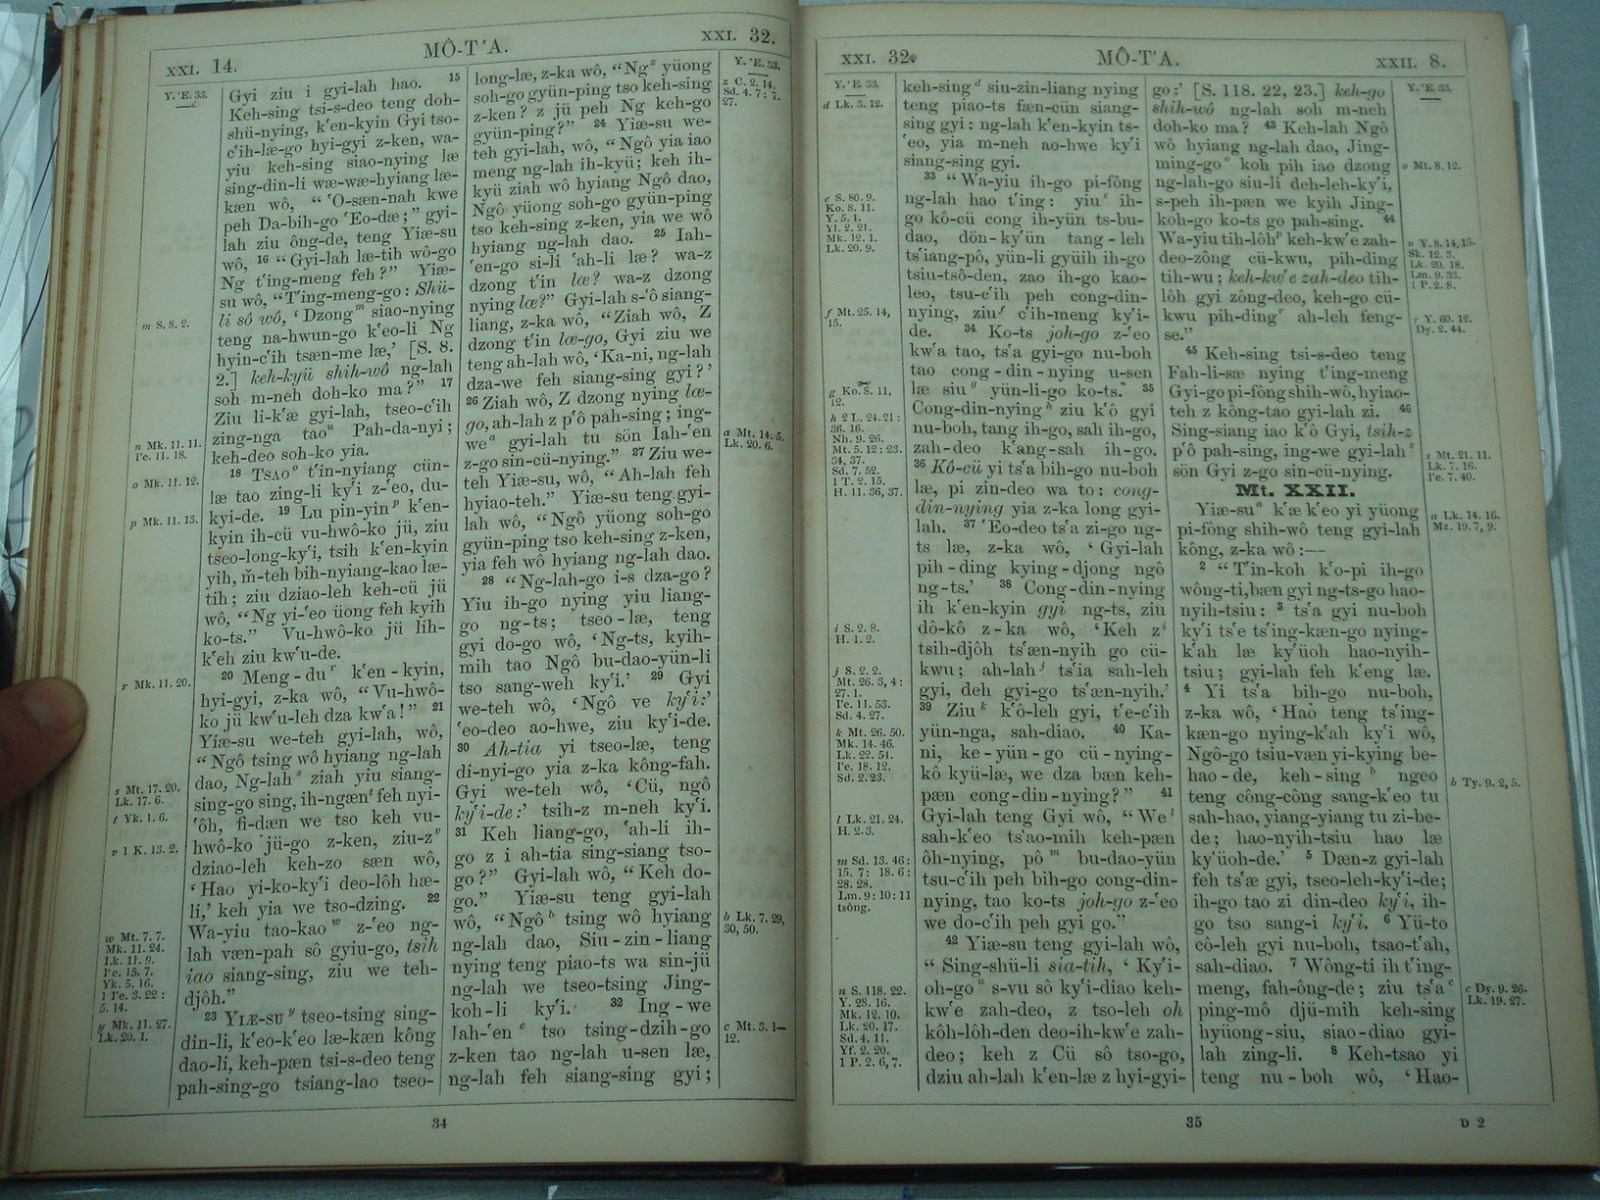 XXI. 14.
MÔ-TʻA.
XXI. 32.
Y. ʻE. 33.
m S. 8. 2.
n Mk. 11. 11.
Ie. 11. 18.
o Mk. 11. 12.
p Mk. 11. 13.
r Mk. 11. 20.
s Mt. 17. 20.
Lk. 17. 6.
t Yk. 1. 6.
v 1 K. 13. 2.
w Mt. 7. 7.
Mk. 11. 24.
Lk. 11. 9.
Ie. 15. 7.
Yk. 5. 16.
1 Ie. 3. 22 :
5. 14.
y Mk. 11. 27.
Lk. 20. 1.
Gyi ziu i gyi-lah hao. 15
Keh-sing tsi-s-deo teng doh-
shü-nying, kʻen-kyin Gyi tso-
cʻih-læ-go hyi-gyi z-ken, wa-
yiu keh-sing siao-nying læ
sing-din-li wæ-wæ-hyiang læ-
kæn wô, “ ʻO-sæn-nah kwe
peh Da-bih-go ʻEo-dæ ;” gyi-
lah ziu ông-de, teng Yiæ-su
wô, 16 “ Gyi-lah læ-tih wô-go
Ng tʻing-meng feh ?” Yiæ-
su wô, “ Tʻing-meng-go : Shü-
li sô wô, ‘ Dzong m siao-nying
teng na-hwun-go kʻeo-li Ng
hyin-cʻih tsæn-me læ,’ [S. 8.
2.] keh-kyü shih-wô ng-lah
soh m-neh doh-ko ma ?” 17
Ziu li-kʻæ gyi-lah, tseo-cʻih
zing-nga tao n Pah-da-nyi ;
keh-deo soh-ko yia.
18 TSAO o tʻin-nyiang cün-
læ tao zing-li kyʻi z-ʻeo, du-
kyi-de. 19 Lu pin-yin p kʻen-
kyin ih-cü vu-hwô-ko jü, ziu
tseo-long-kyʻi, tsih kʻen-kyin
yih, m̆-teh bih-nyiang-kao læ-
tih ; ziu dziao-leh keh-cü jü
wô, “ Ng yi-ʻeo üong feh kyih
ko-ts.” Vu-hwô-ko jü lih-
kʻeh ziu kwʻu-de.
20 Meng-du r kʻen-kyin,
hyi-gyi, z-ka wô, “ Vu-hwô-
ko jü kwʻu-leh dza kwʻa !” 21
Yiæ-su we-teh gyi-lah, wô,
“ Ngô tsing wô hyiang ng-lah
dao, Ng-lah s ziah yiu siang-
sing-go sing, ih-ngæn t feh nyi-
ʻôh, fi-dæn we tso keh vu-
hwô-ko jü-go z-ken, ziu-z v
dziao-leh keh-zo sæn wô,
‘ Hao yi-ko-kyʻi deo-lôh hæ-
li,’ keh yia we tso-dzing. 22
Wa-yiu tao-kao w z-ʻeo ng-
lah væn-pah sô gyiu-go, tsih
iao siang-sing, ziu we teh-
djôh.”
23 YIÆ-SU y tseo-tsing sing-
din-li, kʻeo-kʻeo læ-kæn kông
dao-li, keh-pæn tsi-s-deo teng
pah-sing-go tsiang-lao tseo-
long-læ, z-ka wô, “ Ng z yüong
soh-go gyün-ping tso keh-sing
z-ken ? z jü peh Ng keh-go
gyün-ping ?” 24 Yiæ-su we-
teh gyi-lah, wô, “ Ngô yia iao
meng ng-lah ih-kyü ; keh ih-
kyü ziah wô hyiang Ngô dao,
Ngô yüong soh-go gyün-ping
tso keh-sing z-ken, yia we wô
hyiang ng-lah dao. 25 Iah-
ʻen-go si-li ʻah-li læ ? wa-z
dzong tʻin læ ? wa-z dzong
nying læ ?” Gyi-lah s-ʻô siang-
liang, z-ka wô, “ Ziah wô, Z
dzong tʻin læ-go, Gyi ziu we
teng ah-lah wô, ‘ Ka-ni, ng-lah
dza-we feh siang-sing gyi ?’
26 Ziah wô, Z dzong nying læ-
go, ah-lah z pʻô pah-sing ; ing-
we a gyi-lah tu sön Iah-ʻen
z-go sin-cü-nying.” 27 Ziu we-
teh Yiæ-su, wô, “ Ah-lah feh
hyiao-teh.” Yiæ-su teng gyi-
lah wô, “ Ngô yüong soh-go
gyün-ping tso keh-sing z-ken,
yia feh wô hyiang ng-lah dao.
28 “ Ng-lah-go i-s dza-go ?
Yiu ih-go nying yiu liang-
go ng-ts ; tseo-læ, teng
gyi do-go wô, ‘ Ng-ts, kyih-
mih tao Ngô bu-dao-yün-li
tso sang-weh kyʻi.’ 29 Gyi
we-teh wô, ‘ Ngô ve kyʻi :’
ʻeo-deo ao-hwe, ziu kyʻi-de.
30 Ah-tia yi tseo-læ, teng
di-nyi-go yia z-ka kông-fah.
Gyi we-teh wô, ‘ Cü, ngô
kyʻi-de :’ tsih-z m-neh kyʻi.
31 Keh liang-go, ʻah-li ih-
go z i ah-tia sing-siang tso-
go ?” Gyi-lah wô, “ Keh do-
go.” Yiæ-su teng gyi-lah
wô, “ Ngô b tsing wô hyiang
ng-lah dao, Siu-zin-liang
nying teng piao-ts wa sin-jü
ng-lah we tseo-tsing Jing-
koh-li kyʻi. 32 Ing-we
Iah-ʻen c tso tsing-dzih-go
z-ken tao ng-lah u-sen læ,
ng-lah feh siang-sing gyi ;
Y. ʻE. 33.
z C. 2. 14.
Sd. 4. 7 : 7.
27.
a Mt. 14. 5.
Lk. 20. 6.
b Lk. 7. 29,
30, 50.
c Mt. 3. 1—
12.
34
XXI. 32.
MÔ-TʻA.
XXII. 8.
Y. ʻE. 33.
d Lk. 3. 12.
e S. 80. 9.
Ko. 8. 11.
Y. 5. 1.
Yl. 2. 21.
Mk. 12. 1.
Lk. 20. 9.
f Mt. 25. 14,
15.
g Ko. 8. 11,
12.
h 2 L. 24. 21 :
36. 16.
Nh. 9. 26.
Mt. 5. 12 : 23.
34, 37.
Sd. 7. 52.
1 T. 2. 15.
H. 11. 36, 37.
i S. 2. 8.
H. 1. 2.
j S. 2. 2.
Mt. 26. 3, 4 :
27. 1.
Ie. 11. 53.
Sd. 4. 27.
k Mt. 26. 50.
Mk. 14. 46.
Lk. 22. 54.
Ie. 18. 12.
Sd. 2. 23.
l Lk. 21. 24.
H. 2. 3.
m Sd. 13. 46 :
15. 7 : 18. 6 :
28. 28.
Lm. 9 : 10 : 11
tsông.
n S. 118. 22.
Y. 28. 16.
Mk. 12. 10.
Lk. 20. 17.
Sd. 4. 11.
Yf. 2. 20.
1 P. 2. 6, 7.
keh-sing d siu-zin-liang nying
teng piao-ts fæn-cün siang-
sing gyi : ng-lah kʻen-kyin ts-
ʻeo, yia m-neh ao-hwe kyʻi
siang-sing gyi.
33 “ Wa-yiu ih-go pi-fông
ng-lah hao tʻing : yiu e ih-
go kô-cü cong ih-yün ts-bu-
dao, dön-kyʻün tang-leh
tsʻiang-pô, yün-li gyüih ih-go
tsiu-tsô-den, zao ih-go kao-
leo, tsu-cʻih peh cong-din-
nying, ziu f cʻih-meng kyʻi-
de. 34 Ko-ts joh-go z-ʻeo
kwʻa tao, tsʻa gyi-go nu-boh
tao cong-din-nying u-sen
læ siu g yün-li-go ko-ts. 35
Cong-din-nying h ziu kʻô gyi
nu-boh, tang ih-go, sah ih-go,
zah-deo kʻang-sah ih-go.
36 Kô-cü yi tsʻa bih-go nu-boh
læ, pi zin-deo wa to : cong-
din-nying yia z-ka long gyi-
lah. 37 ʻEo-deo tsʻa zi-go ng-
ts læ, z-ka wô, ‘ Gyi-lah
pih-ding kying-djong ngô
ng-ts.’ 38 Cong-din-nying
ih kʻen-kyin gyi ng-ts, ziu
dô-kô z-ka wô, ‘ Keh z i
tsih-djôh tsʻæn-nyih go cü-
kwu ; ah-lah j tsʻia sah-leh
gyi, deh gyi-go tsʻæn-nyih.’
39 Ziu k kʻô-leh gyi, tʻe-cʻih
yün-nga, sah-diao. 40 Ka-
ni, ke-yün-go cü-nying-
kô kyü-læ, we dza bæn keh-
pæn cong-din-nying ?” 41
Gyi-lah teng Gyi wô, “ We l
sah-kʻeo tsʻao-mih keh-pæn
ôh-nying, pô m bu-dao-yün
tsu-cʻih peh bih-go cong-din-
nying, tao ko-ts joh-go z-ʻeo
we do-cʻih peh gyi go.”
42 Yiæ-su teng gyi-lah wô,
“ Sing-shü-li sia-tih, ‘ Kyʻi-
oh-go n s-vu sô kyʻi-diao keh-
kwʻe zah-deo, z tso-leh oh
kôh-lôh-den deo-ih-kwʻe zah-
deo ; keh z Cü sô tso-go,
dziu ah-lah kʻen-læ z hyi-gyi-
go :’ [S. 118. 22, 23.] keh-go
shih-wô ng-lah soh m-neh
doh-ko ma ? 43 Keh-lah Ngô
wô hyiang ng-lah dao, Jing-
ming-go o koh pih iao dzong
ng-lah-go siu-li deh-leh-kyʻi,
s-peh ih-pæn we kyih Jing-
koh-go ko-ts go pah-sing. 44
Wa-yiu tih-lôh p keh-kwʻe zah-
deo-zông cü-kwu, pih-ding
tih-wu ; keh-kwʻe zah-deo tih-
lôh gyi zông-deo, keh-go cü-
kwu pih-ding r ah-leh feng-
se.”
45 Keh-sing tsi-s-deo teng
Fah-li-sæ nying tʻing-meng
Gyi-go pi-fông shih-wô, hyiao-
teh z kông-tao gyi-lah zi. 46
Sing-siang iao kʻô Gyi, tsih-z
pʻô pah-sing, ing-we gyi-lah s
sön Gyi z-go sin-cü-nying.
Mt. XXII.
Yiæ-su a kʻæ kʻeo yi yüong
pi-fông shih-wô teng gyi-lah
kông, z-ka wô :—
2 “ Tʻin-koh kʻo-pi ih-go
wông-ti, bæn gyi ng-ts-go hao-
nyih-tsiu : 3 tsʻa gyi nu-boh
kyʻi tsʻe tsʻing-kæn-go nying-
kʻah læ kyʻüoh hao-nyih-
tsiu ; gyi-lah feh kʻeng læ.
4 Yi tsʻa bih-go nu-boh,
z-ka wô, ‘ Hao teng tsʻing-
kæn-go nying-kʻah kyʻi wô,
Ngô-go tsiu-væn yi-kying be-
hao-de, keh-sing b ngeo
teng công-công sang-kʻeo tu
sah-hao, yiang-yiang tu zi-be-
de ; hao-nyih-tsiu hao læ
kyʻüoh-de.’ 5 Dæn-z gyi-lah
feh tsʻæ gyi, tseo-leh-kyʻi-de ;
ih-go tao zi din-deo kyʻi, ih-
go tso sang-i kyʻi. 6 Yü-to
cô-leh gyi nu-boh, tsao-tʻah,
sah-diao. 7 Wông-ti ih tʻing-
meng, fah-ông-de ; ziu tsʻa c
ping-mô djü-mih keh-sing
hyüong-siu, siao-diao gyi-
lah zing-li. 8 Keh-tsao yi
teng nu-boh wô, ‘ Hao-
Y. ʻE. 33.
o Mt. 8. 12.
p Y. 8. 14, 15.
Sk. 12. 3.
Lk. 20. 18.
Lm. 9. 33.
1 P. 2. 8.
r Y. 60. 12.
Dy. 2. 44.
s Mt. 21. 11.
Lk. 7. 16.
Ie. 7. 40.
a Lk. 14. 16.
Mz. 19. 7, 9.
b Ty. 9. 2, 5.
c Dy. 9. 26.
Lk. 19. 27.
35
D 2